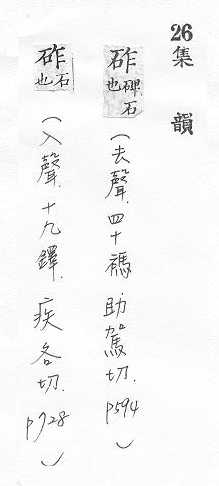 26集韻
砟碑石也(去聲.四十禡.助駕切.p594)
砟石也(入聲.十九鐸.疾各切.p728)